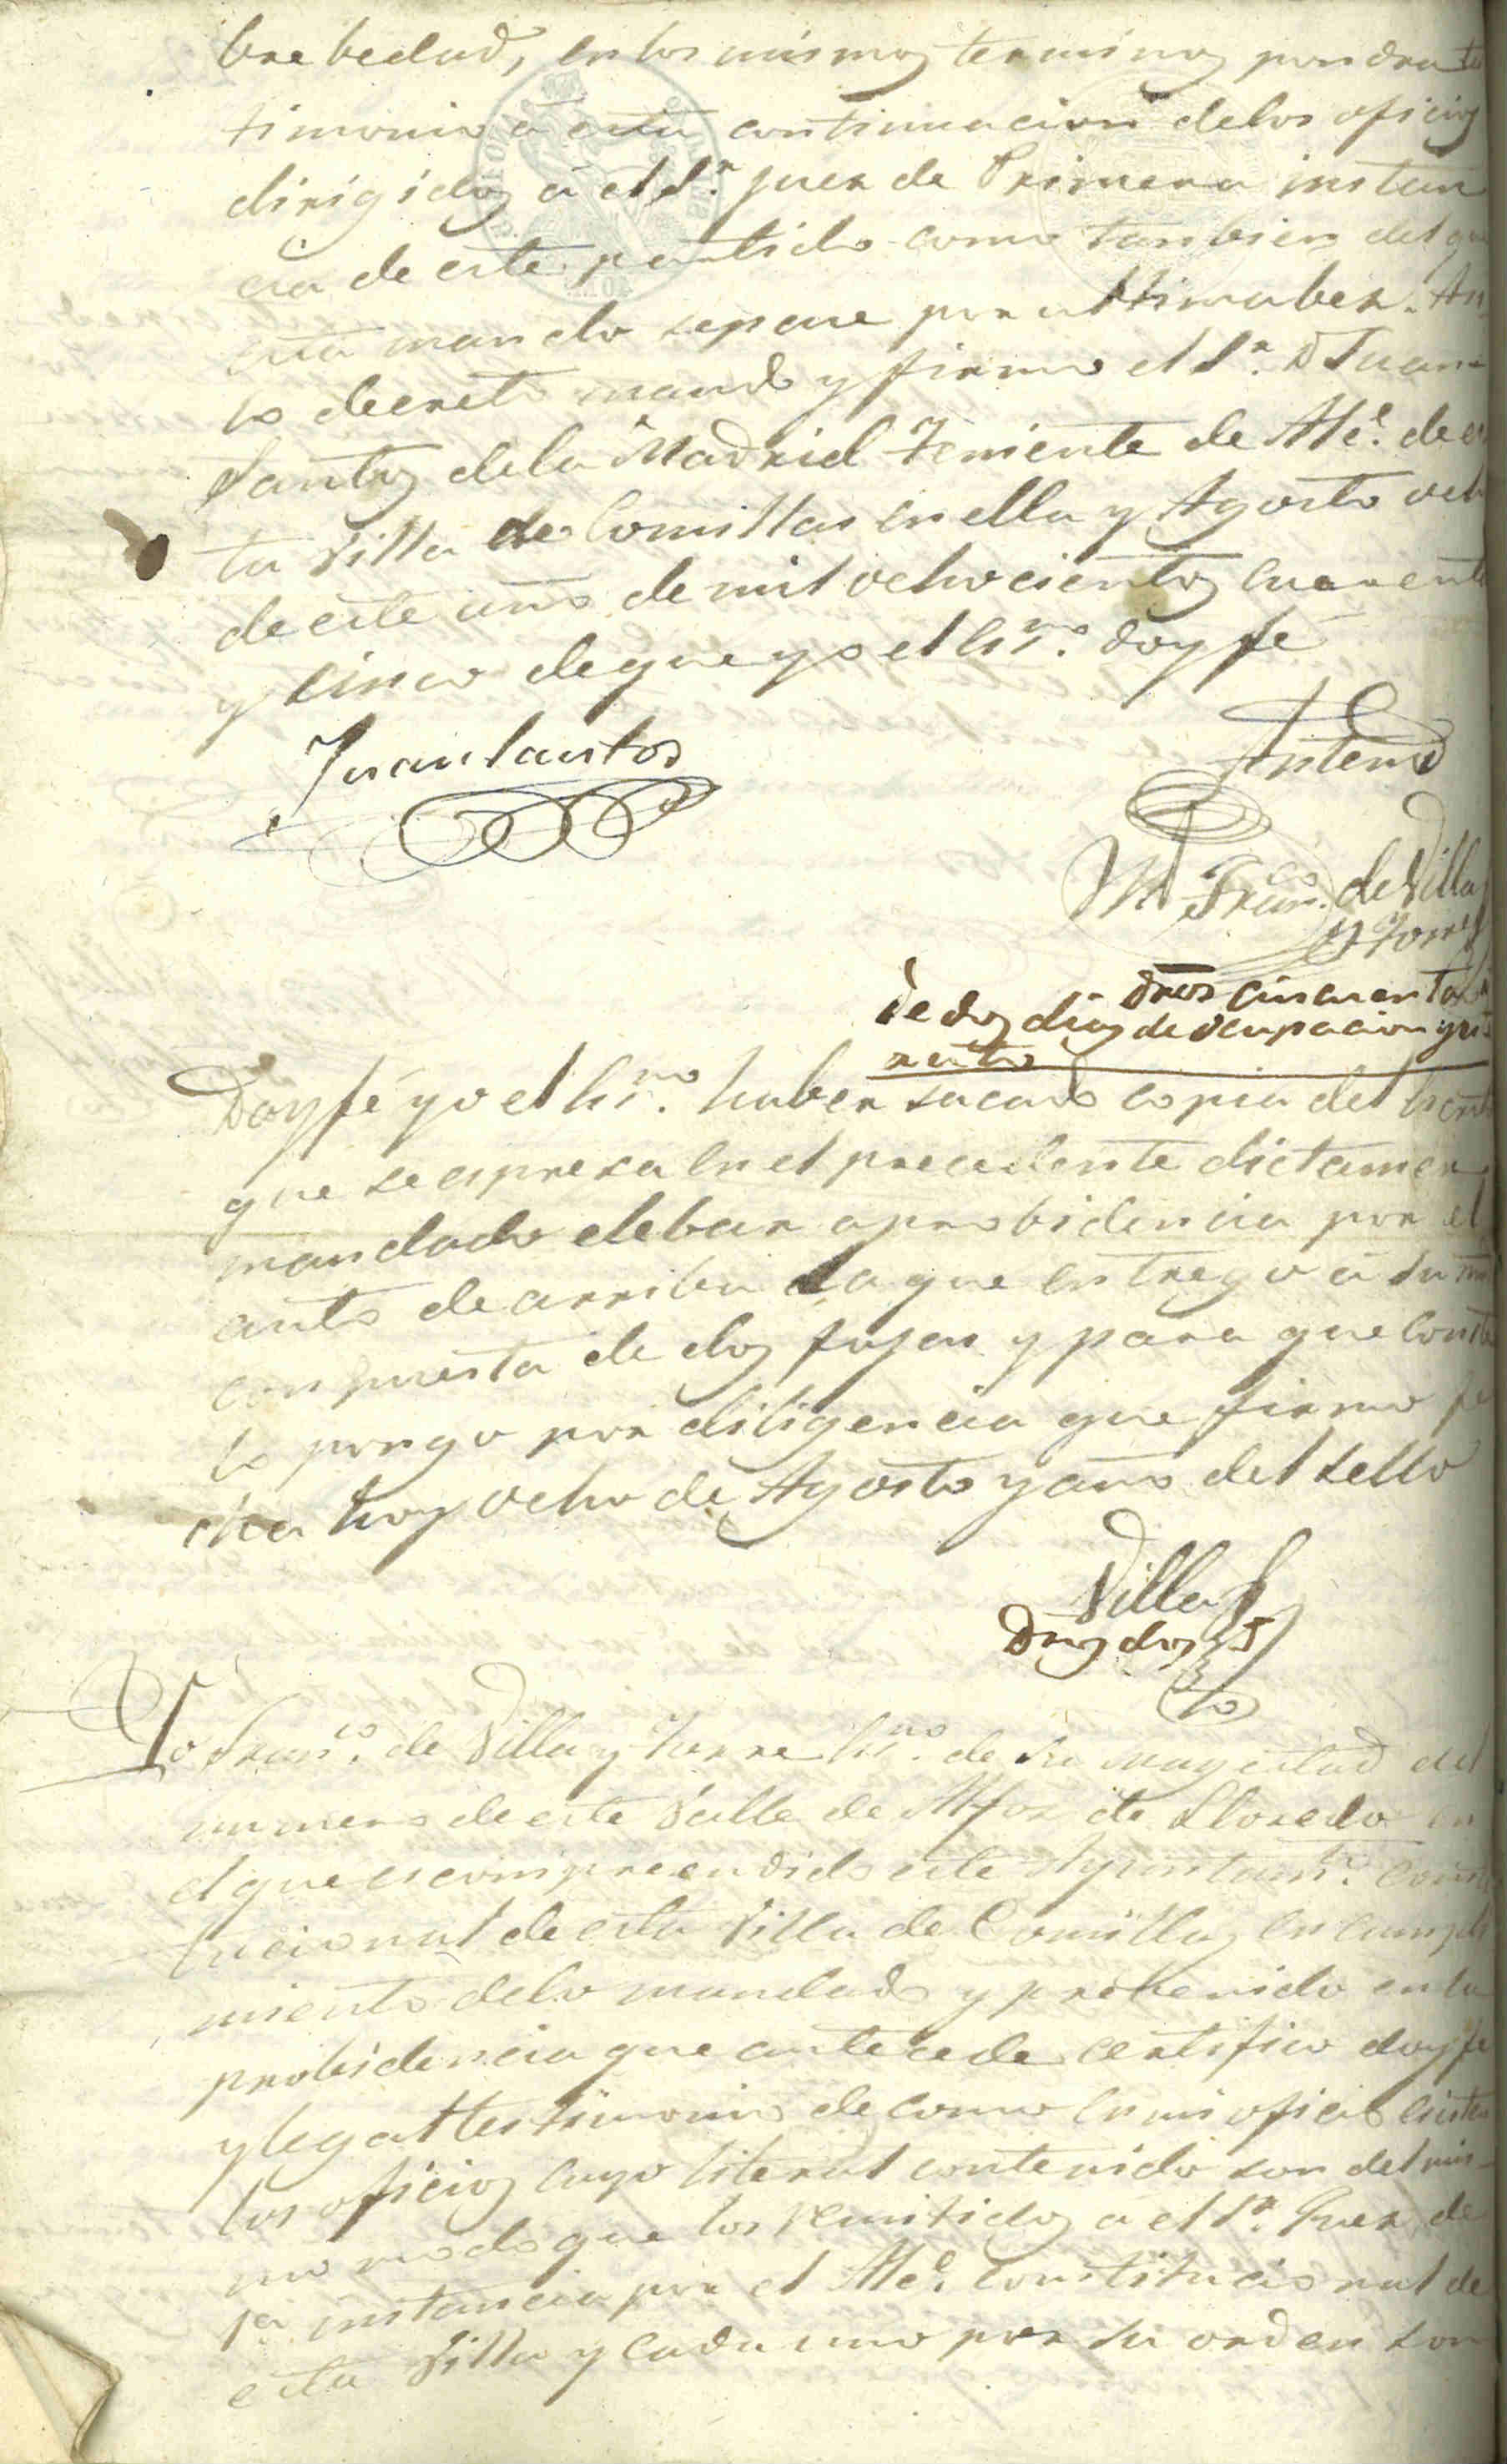 brebedad, en los mismos terminos pondra tes
timonio á esta continuacion delos oficios
dirigidos á el Sr. Juez de Primera instan
cia de este partido como tanbien del que
esta mando sepase por ultima bez. Asi
lo decreto mando y firmo el Sr. D Juan
Santos dela Madrid Teniente de Alce. de es
ta Villa de Comillas en ella y Agosto ocho
de este año de mil ochocientos cuarenta
y cinco deque yo el Esno. doy fé
Juan Santos
Antemi
Franco. de Villa
y Torre
dros cincuenta
de dos dias de ocupacion y
Doy fé yo el Esno. haber sacado copia del
que se espresa en el precedente dictamen
mandado elebar aprobidencia por el
auto de arriba la que entrego á su
conpuesta de dos fojas y para que conste
lo pongo por diligencia que firmo fe
cha hoy ocho de Agosto y año del sello
Villa
Dros dos
Yo Franco. de Villa y Torre Esno. de Su Magestad del
numero de este Valle de Alfoz de Lloredo en
el que es comprendido este Ayuntamto. Consti
tucional de esta Villa de Comillas en cumpli
miento delo mandado y prebenido en la
probidencia que antecede certifico doy fe
y legal testimonio de como en mi oficio ecsisten
los oficios cuyo literal contenido son del mis-
mo modo que los remitidos á el Sr. Juez de
1a instancia por el Alce. Constitucional de
esta Villa y cada uno por su orden son